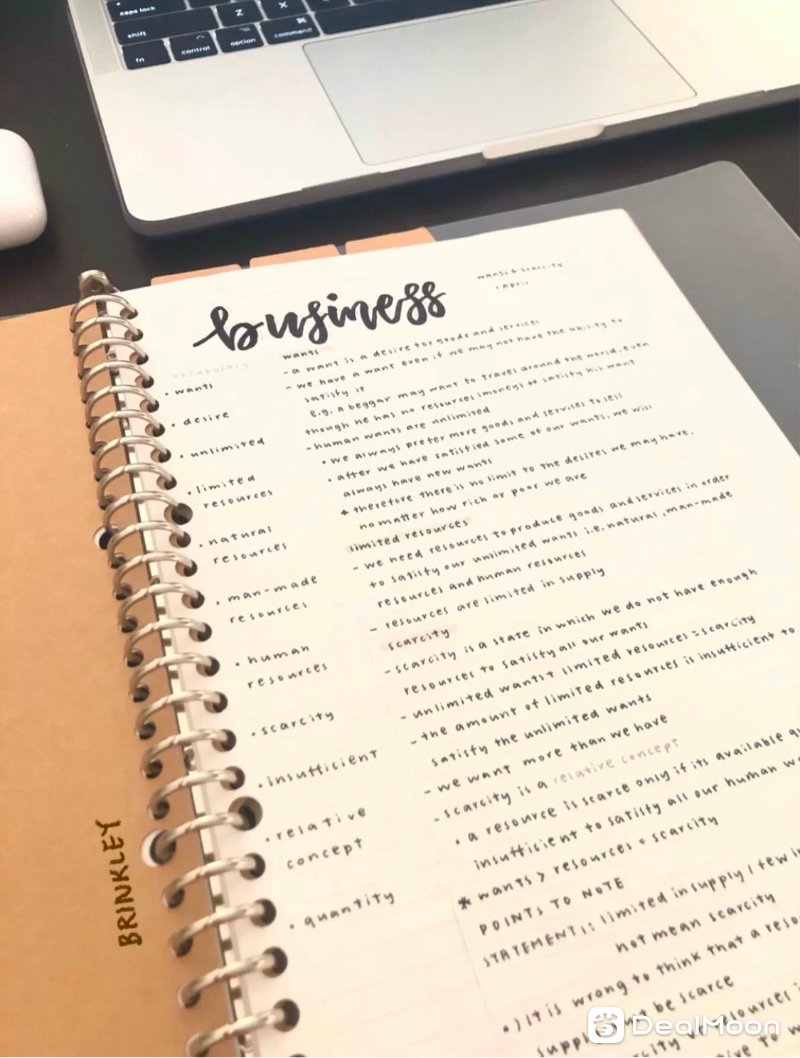 caps lock
shift
Z
X
fn
control
option
command
⌘
business
wants & scarcity
1 April
vocabulary
• wants
• desire
• unlimited
• limited
resources
• natural
resources
• man-made
resources
• human
resources
• scarcity
• insufficient
• relative
concept
• quantity
wants
- a want is a desire for goods and services
- we have a want even if we may not have the ability to
satisfy it
e.g. a beggar may want to travel around the world, even
though he has no resources (money) to satisfy his want
- human wants are unlimited
• we always prefer more goods and services to less
• after we have satisfied some of our wants, we will
always have new wants
* therefore there is no limit to the desires we may have,
no matter how rich or poor we are
limited resources
- we need resources to produce goods and services in order
to satisfy our unlimited wants i.e. natural, man-made
resources and human resources
- resources are limited in supply
scarcity
- scarcity is a state in which we do not have enough
resources to satisfy all our wants
- unlimited wants + limited resources = scarcity
- the amount of limited resources is insufficient to
satisfy the unlimited wants
- we want more than we have
- scarcity is a relative concept
• a resource is scarce only if its available
insufficient to satisfy all our human
* wants > resources = scarcity
POINTS TO NOTE
STATEMENTS: limited in supply / few in
not mean scarcity
•) It is wrong to think that a
be scarce
BRINKLEY
DealMoon